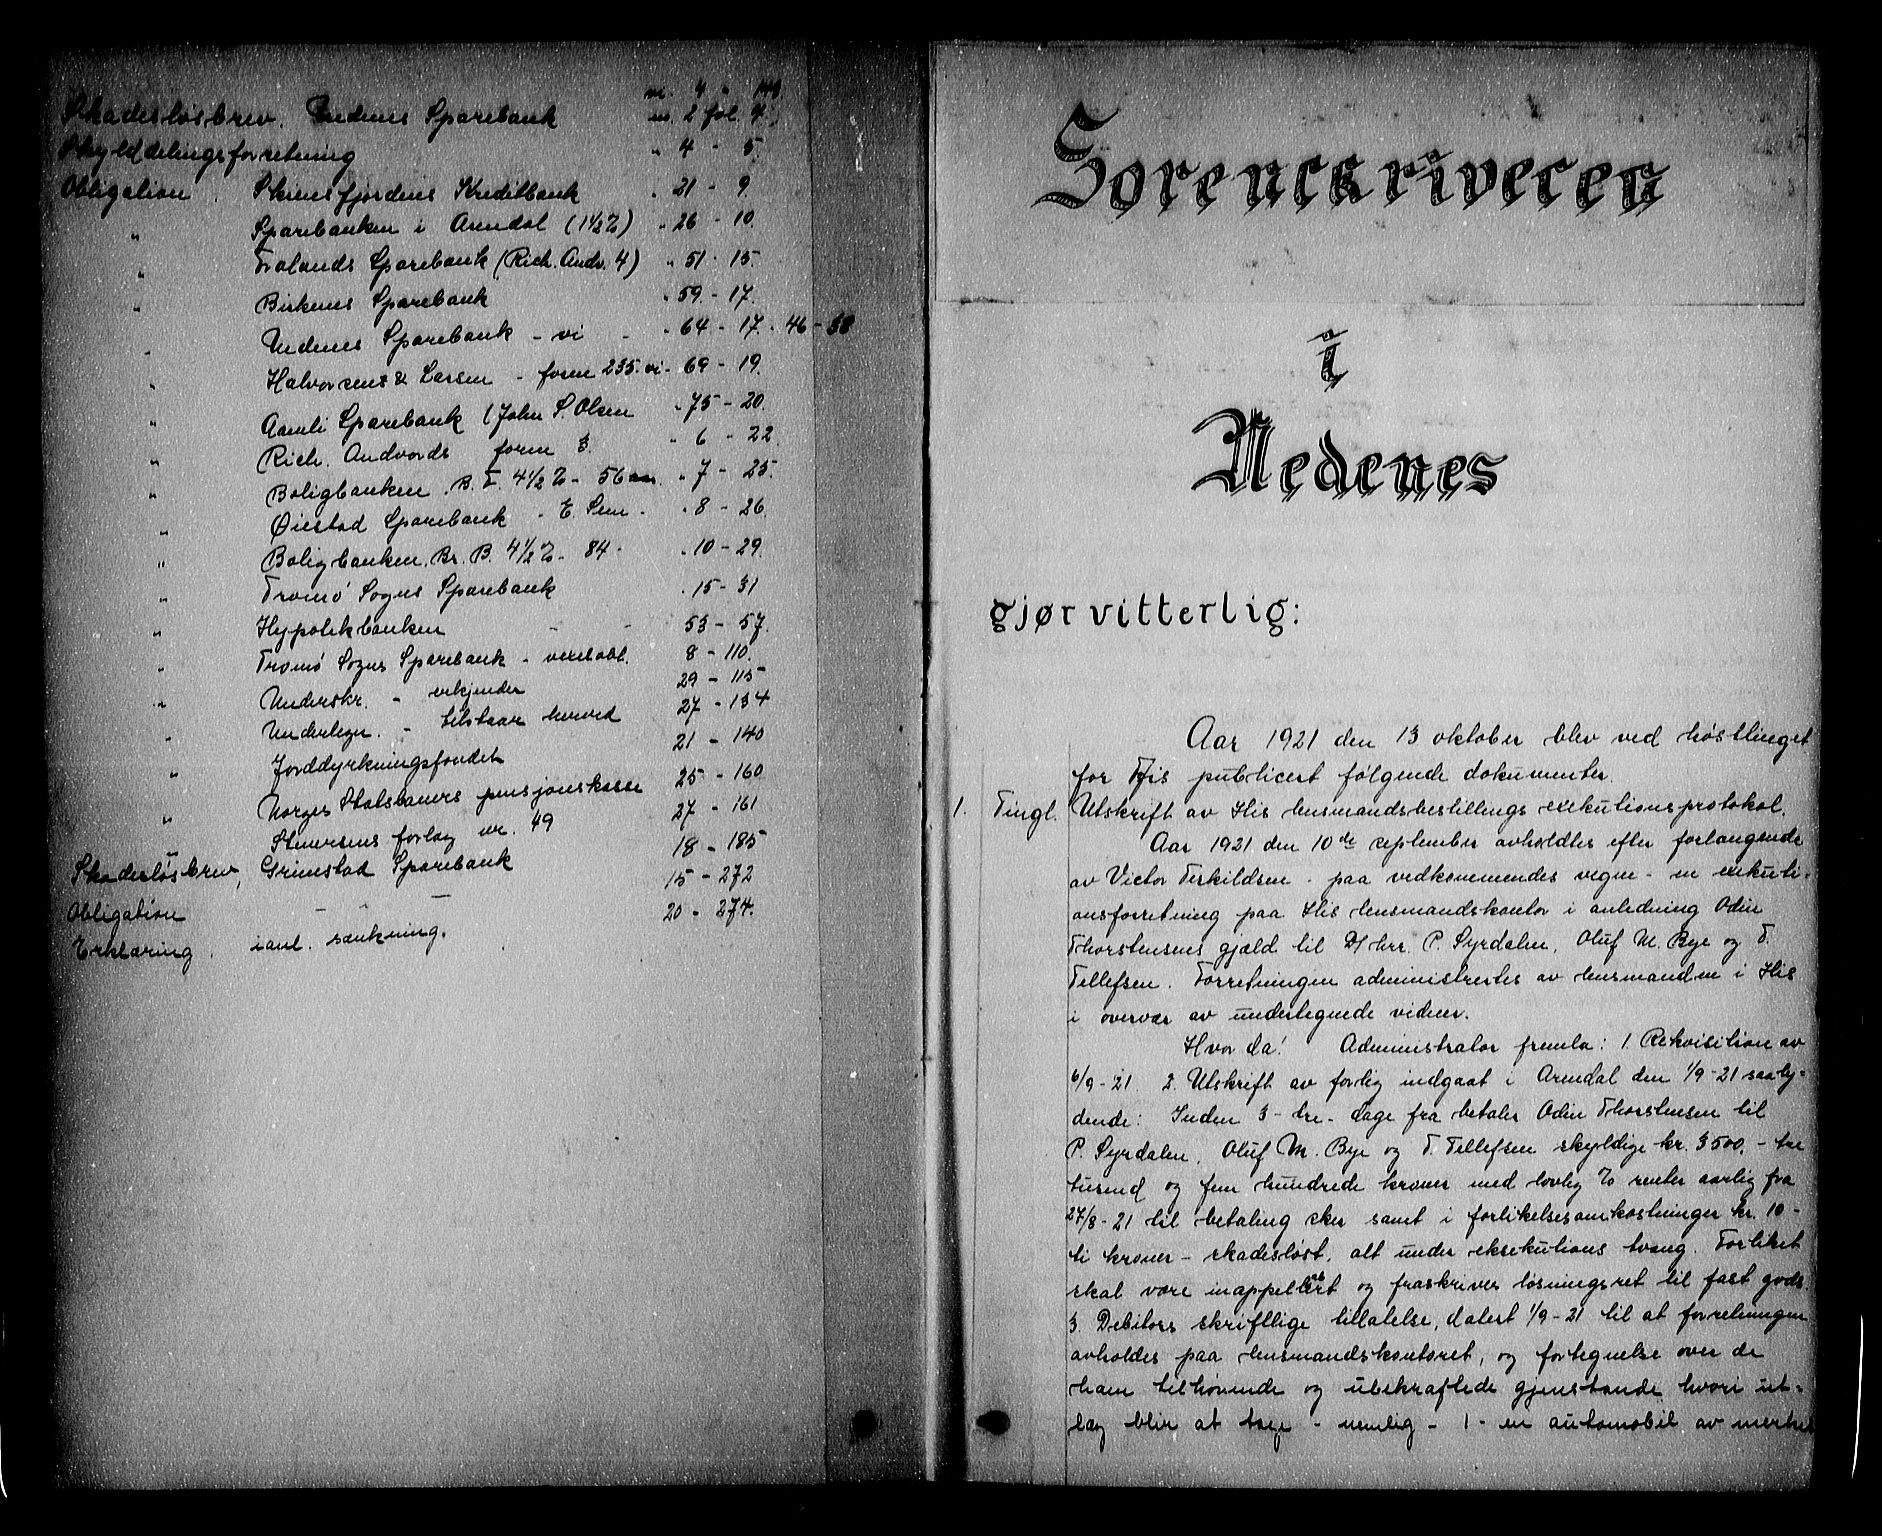 vi. 4 - 149
Skadesløsbrev. Nedenes Sparebank m. 2 fol. 4.
Skylddelingsforretning " 4 - 5.
Obligation. Skiensfjordens Kreditbank . 21 - 9.
" Sparebanken i Arendal (1½%) " 26 - 10.
" Frolands Sparebank (Rich. Andv. 4) " 51 - 15.
" Birkenes Sparebank " 59. - 17.
" Nedenes Sparebank - vi - " 64 - 17. - 46 - 58
" Halvorsens & Larsen - form 235. vi - 69 - 19.
" Aamli Sparebank (John S. Olsen " 75 - 20.
" Rich. Andvords form 3. " 6 - 22.
" Boligbanken. B. F. 4½% - 56 " 7 - 25.
" Øiestad Sparebank - E. Sem - " 8 - 26.
" Boligbanken. Br. B. 4½% - 84 - " 10 - 29.
" Tromø Sogns Sparebank . 15 - 31
" Hypotekbanken - - 53 - 57.
" Tromø Sogns Sparebank - vexelobl. 8 - 110.
" Underskr. - erkjender 29 - 115
" Undertegn. - tilstaar herved 27 - 134
" Jorddyrkningsfondet 21 - 140
" Norges Statsbaners pensjonskasse 25 - 160
" Stenersens forlag nr. 49 27 - 161
Skadesløsbrev, Grimstad Sparebank 18 - 185
Obligation - - - 15 - 272
Erklæring. i anl. sænkning. 20 - 274.
Sorenskriveren
i
Nedenes
gjør vitterlig:
Aar 1921 den 13 oktober blev ved høsttinget
for His publicert følgende dokumenter.
1. Tingl. Utskrift av His lensmandsbestillings exekutionsprotokol.
Aar 1921 den 10de september avholdtes efter forlangende
av Victor Terkildsen - paa vedkommendes vegne - en exekuti-
onsforretning paa His lensmandskontor i anledning Odin
Thorstensens gjæld til D/hrr. P. Syrdalen, Oluf M. Bye og T.
Tellefsen. Forretningen administrertes av lensmanden i His
i overvær av undertegnede vidner.
Hvorda! Administrator fremla: 1. Rekvisition av
6/9 - 21. 2. Utskrift av forlig indgaat i Arendal den 1/9 - 21 saaly-
dende: Inden 3 - tre - dage fra betaler Odin Thorstensen til
P. Syrdalen, Oluf M. Bye og T. Tellefsen skyldige kr. 3500, - tre
tusend og fem hundrede kroner med lovlig % renter aarlig fra
27/8 - 21 til betaling sker samt i forlikelsesomkostninger kr. 10 -
ti kroner - skadesløst, alt under eksekutions tvang. Forliket
skal være inappellabelt og fraskriver løsningsret til fast gods.
3. Debitors skriftlige tillatelse, datert 1/9 - 21 til at forretningen
avholdes paa lensmandskontoret, og fortegnelse over de
ham tilhørende og ubekræftede gjenstande hvori ut-
læg blir at tage - nemlig - 1 - en automobil av merket